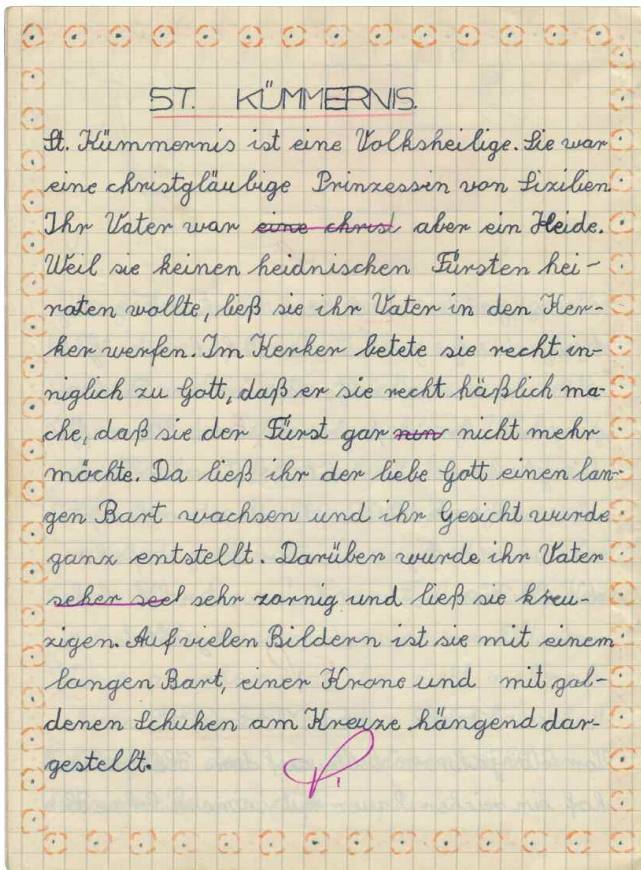 ST. KÜMMERNIS.
St. Kümmernis ist eine Volksheilige. Sie war
eine christgläubige Prinzessin von Sizilien
Ihr Vater war eine christ aber ein Heide.
Weil sie keinen heidnischen Fürsten hei-
raten wollte, ließ sie ihr Vater in den Ker-
ker werfen. Im Kerker betete sie recht in-
niglich zu Gott, daß er sie recht häßlich ma-
che, daß sie der Fürst gar nun nicht mehr
möchte. Da ließ ihr der liebe Gott einen lan-
gen Bart wachsen und ihr Gesicht wurde
ganz entstellt. Darüber wurde ihr Vater
seher seel sehr zornig und ließ sie kreu-
zigen. Auf vielen Bildern ist sie mit einem
langen Bart, einer Krone und mit gol-
denen Schuhen am Kreuze hängend dar-
gestellt.